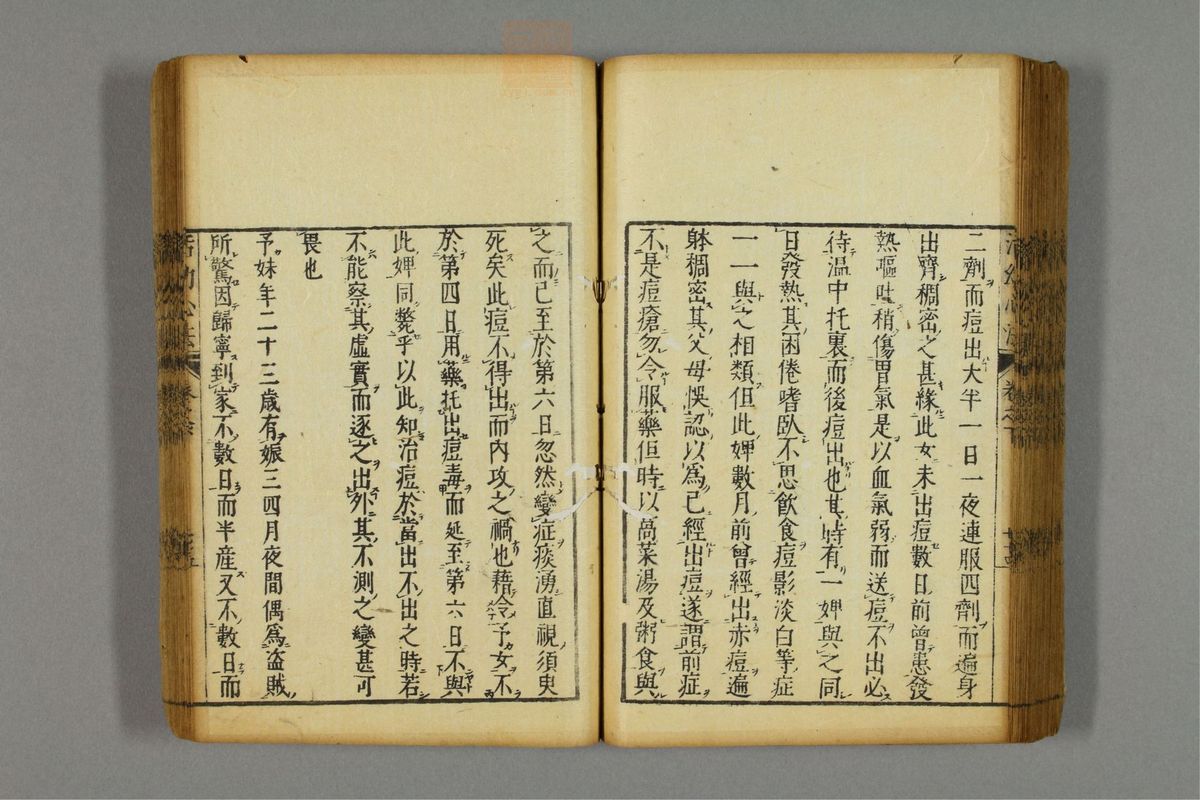 二劑而痘出大半一日一夜連服四劑而遍身
出齊稠密之甚緣此女未出痘數日前曾患發
熱嘔吐稍傷胃氣是以血氣弱而送痘不出必
待温中托裏而後痘出也其時有一婢與之同
日發熱其困倦嗜臥不思飲食痘影淡白等症
一一與之相類但此婢數月前曾經出赤痘遍
躰稠密其父母悞認以爲已經出痘遂謂前症
不是痘瘡勿令服藥但時以萵菜湯及粥食與
之而已至於第六日忽然變症痰湧直視須臾
死矣此痘不得出而内攻之禍也藉令予女不
於第四日用藥托出痘毒而延至第六日不與
此婢同斃乎以此知治痘於當出不出之時若
不能察其虛實而逐之出外其不測之變甚可
畏也
予妹年二十三歲有娠三四月夜間偶爲盗賊
所驚因歸寧到家不數日而半産又不數日而